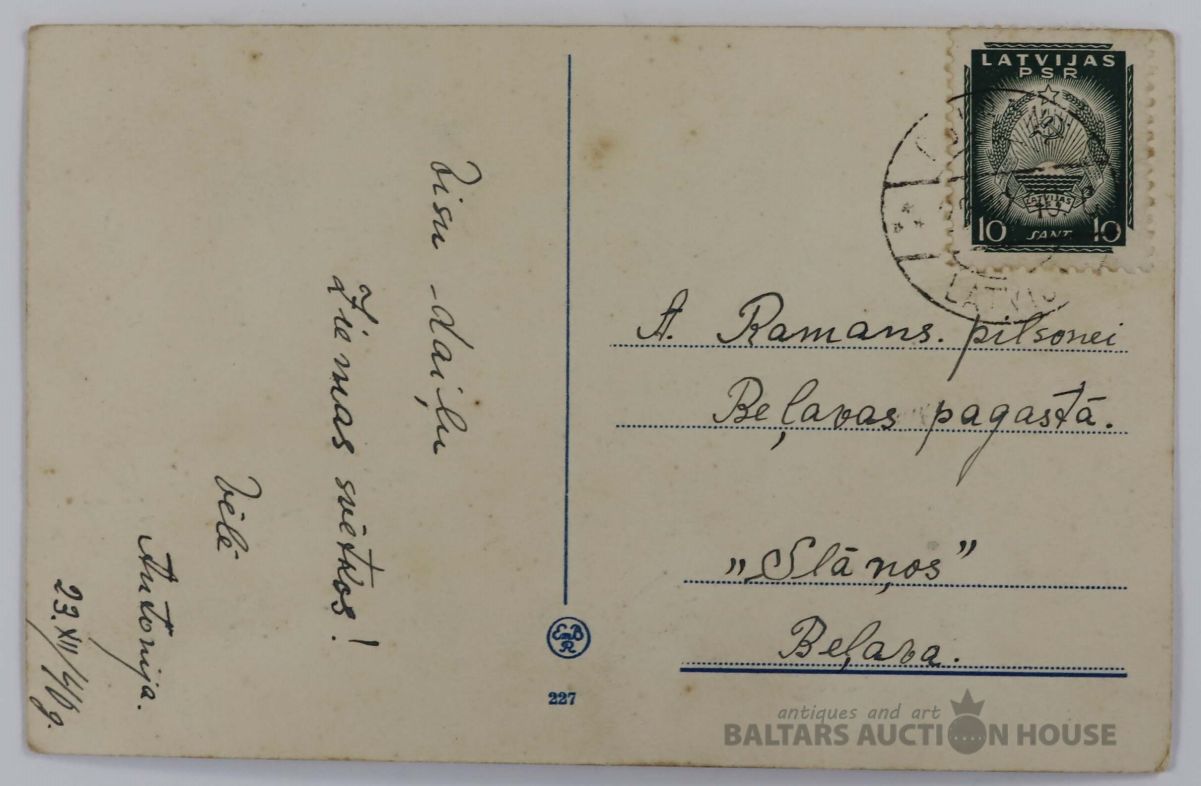 Visu daiļu
Ziemas svētkos!
vēlē
Antonija.
23.XII/40 g.
LATVIJAS
PSR
LATVIJAS
10 SANT 10
LATVIJ
A. Ramans. pilsonei
Beļavas pagastā.
„Slāņos"
Beļava.
EmB
R
227
antiques and art
BALTARS AUCTION HOUSE